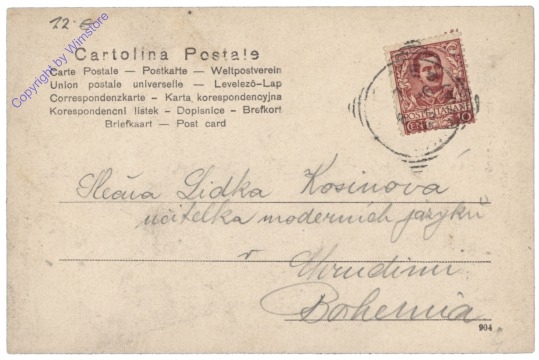 12.
Copyright by Wimstore
Cartolina Postale
Carte Postale — Postkarte — Weltpostverein
Union postale universelle — Levelező-Lap
Correspondenzkarte - Karta korespondencyjna
Korespondencni listek - Dopisnice - Brefkort
Briefkaart — Post card
POSTE ITALIANE
Slečna Lidka Kosinova
učitelka moderních jazyků
v
Chrudimi
Bohemia
904